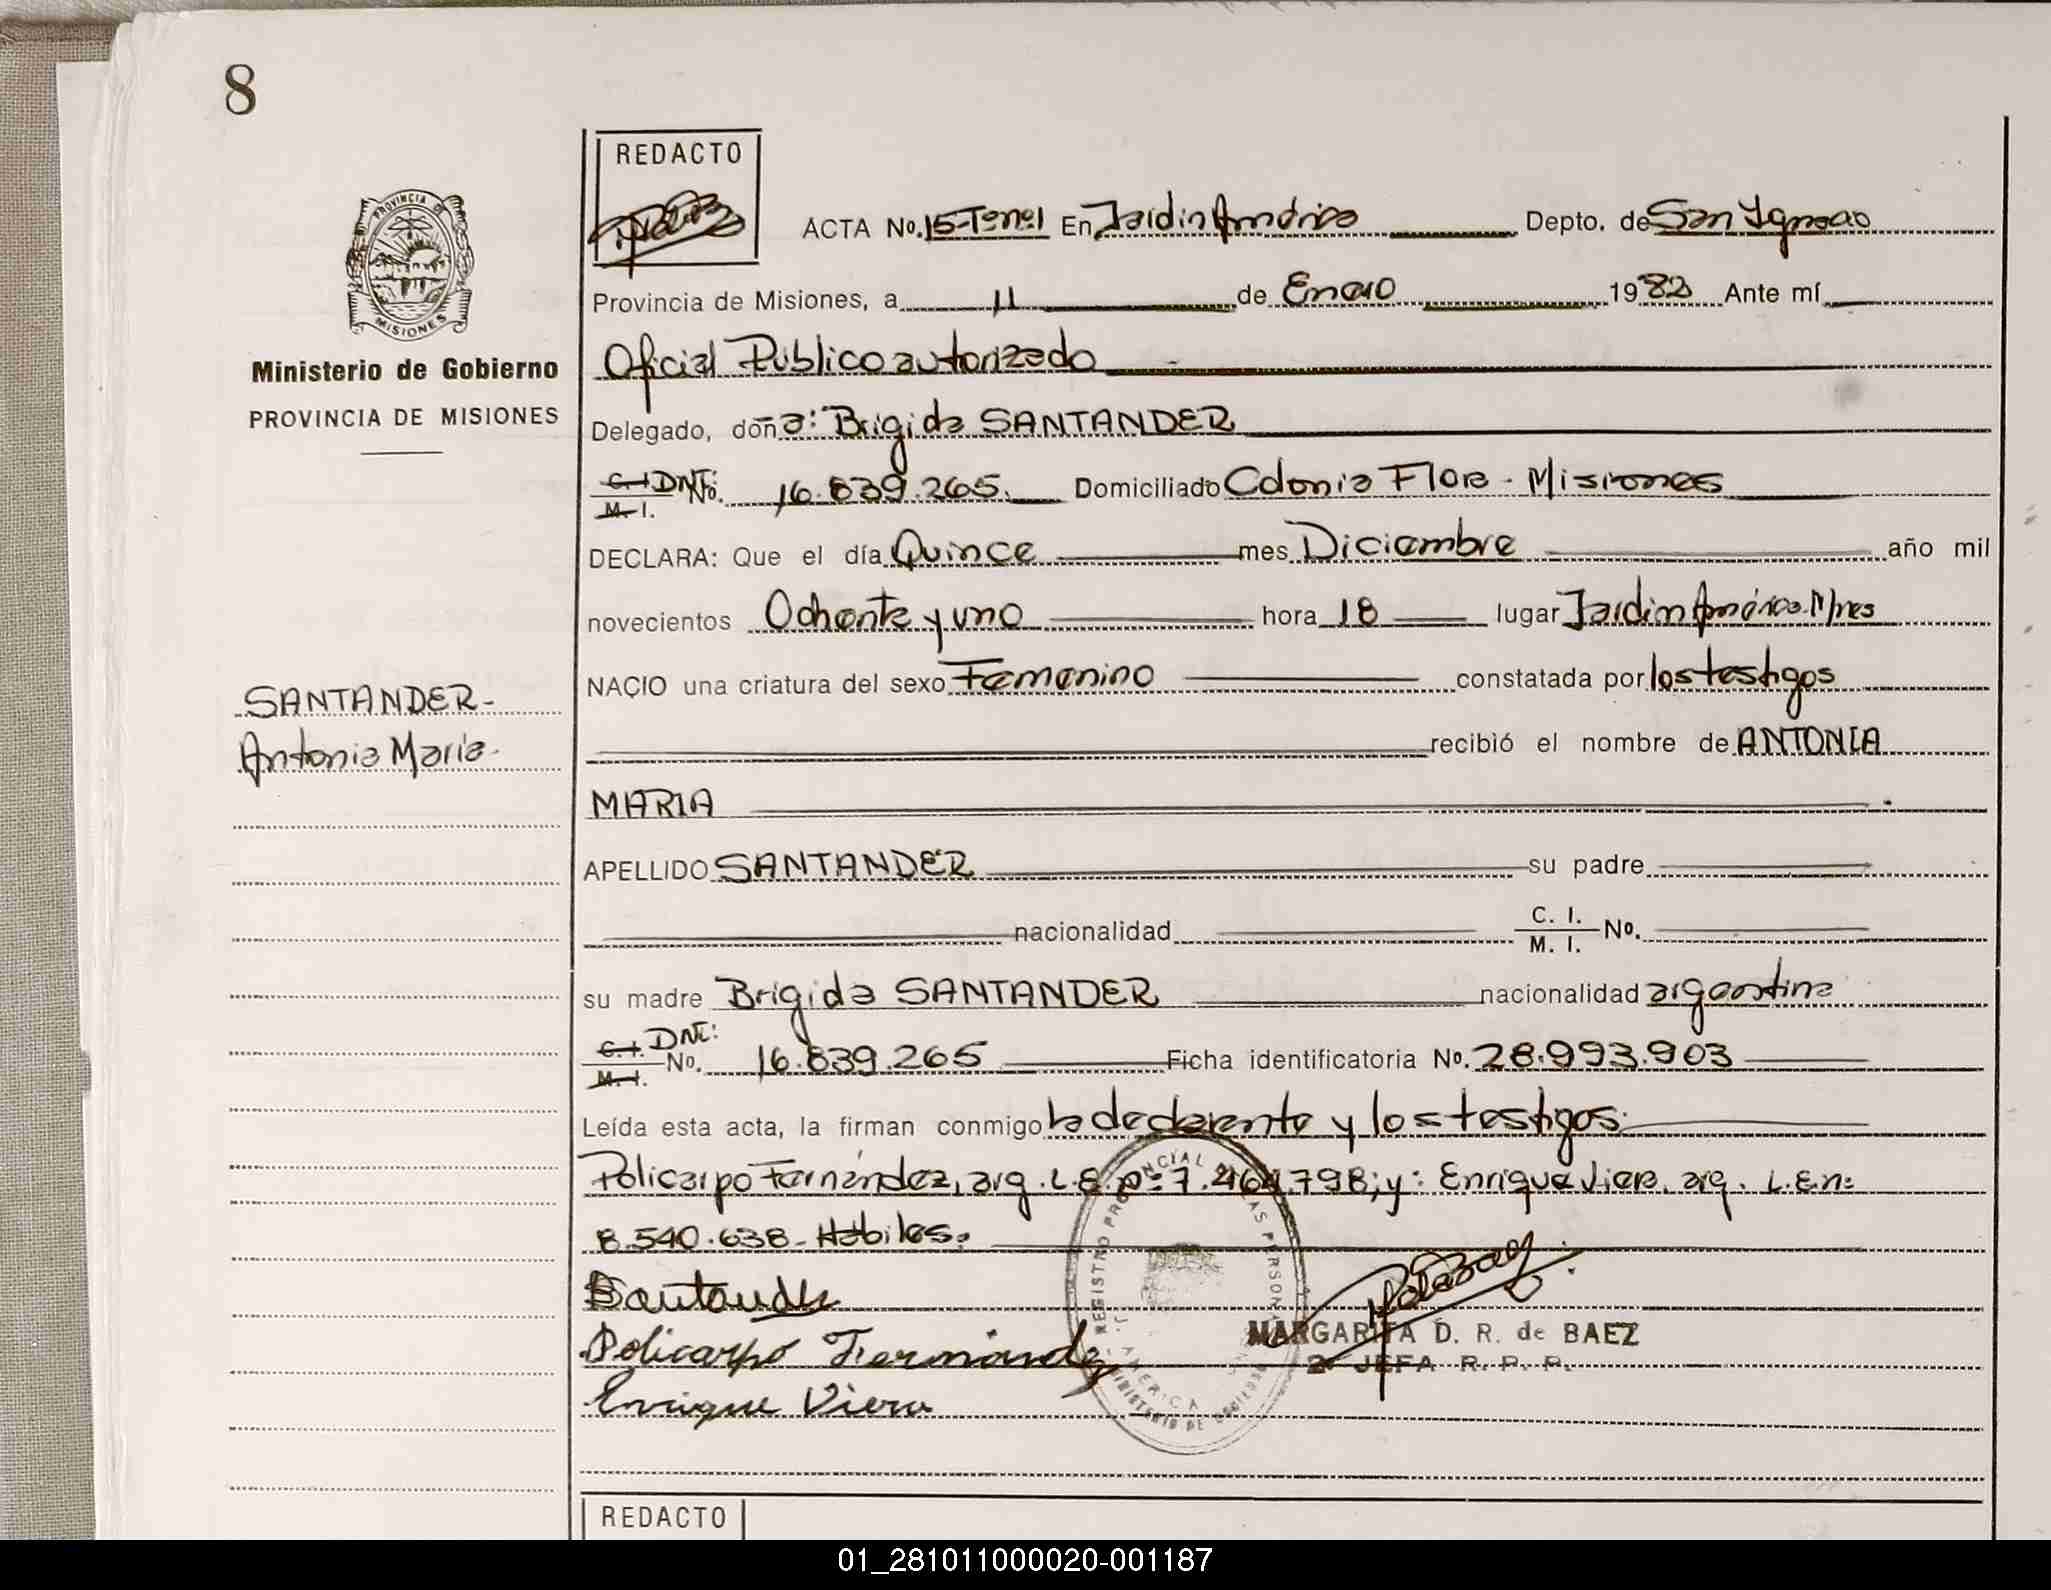 8
REDACTO
ACTA No. 15-Tº nº1 En Jardin América Depto. de San Ignacio
PROVINCIA DE MISIONES
Provincia de Misiones, a 11 de Enero 1982 Ante mí
Ministerio de Gobierno
PROVINCIA DE MISIONES
Oficial Público autorizado
Delegado, doña: Brigida SANTANDER
C. I. DNI: No. M. I. 16.839.265. Domiciliado Colonia Flora - Misiones
DECLARA: Que el día Quince mes Diciembre año mil
novecientos Ochenta y uno hora 18 lugar Jardin América. M/nes
NACIO una criatura del sexo Femenino constatada por los testigos
SANTANDER-
Antonia Maria-
recibió el nombre de ANTONIA
MARIA
APELLIDO SANTANDER su padre
nacionalidad C. I. M. I. No.
su madre Brigida SANTANDER nacionalidad argentina
C. I. DNI: M. I. No. 16.839.265 Ficha identificatoria No. 28.993.903
Leída esta acta, la firman conmigo la declarante y los testigos:
Policarpo Fernández, arg. L.E. nº: 7.464.798; y: Enrique Viera, arg. L.E. nº:
8.540.638- Hábiles.
BSantander
Policarpo Fernández
Enrique Viera
MARGARITA D. R. de BAEZ
2º JEFA R. P. P.
REDACTO
01_281011000020-001187